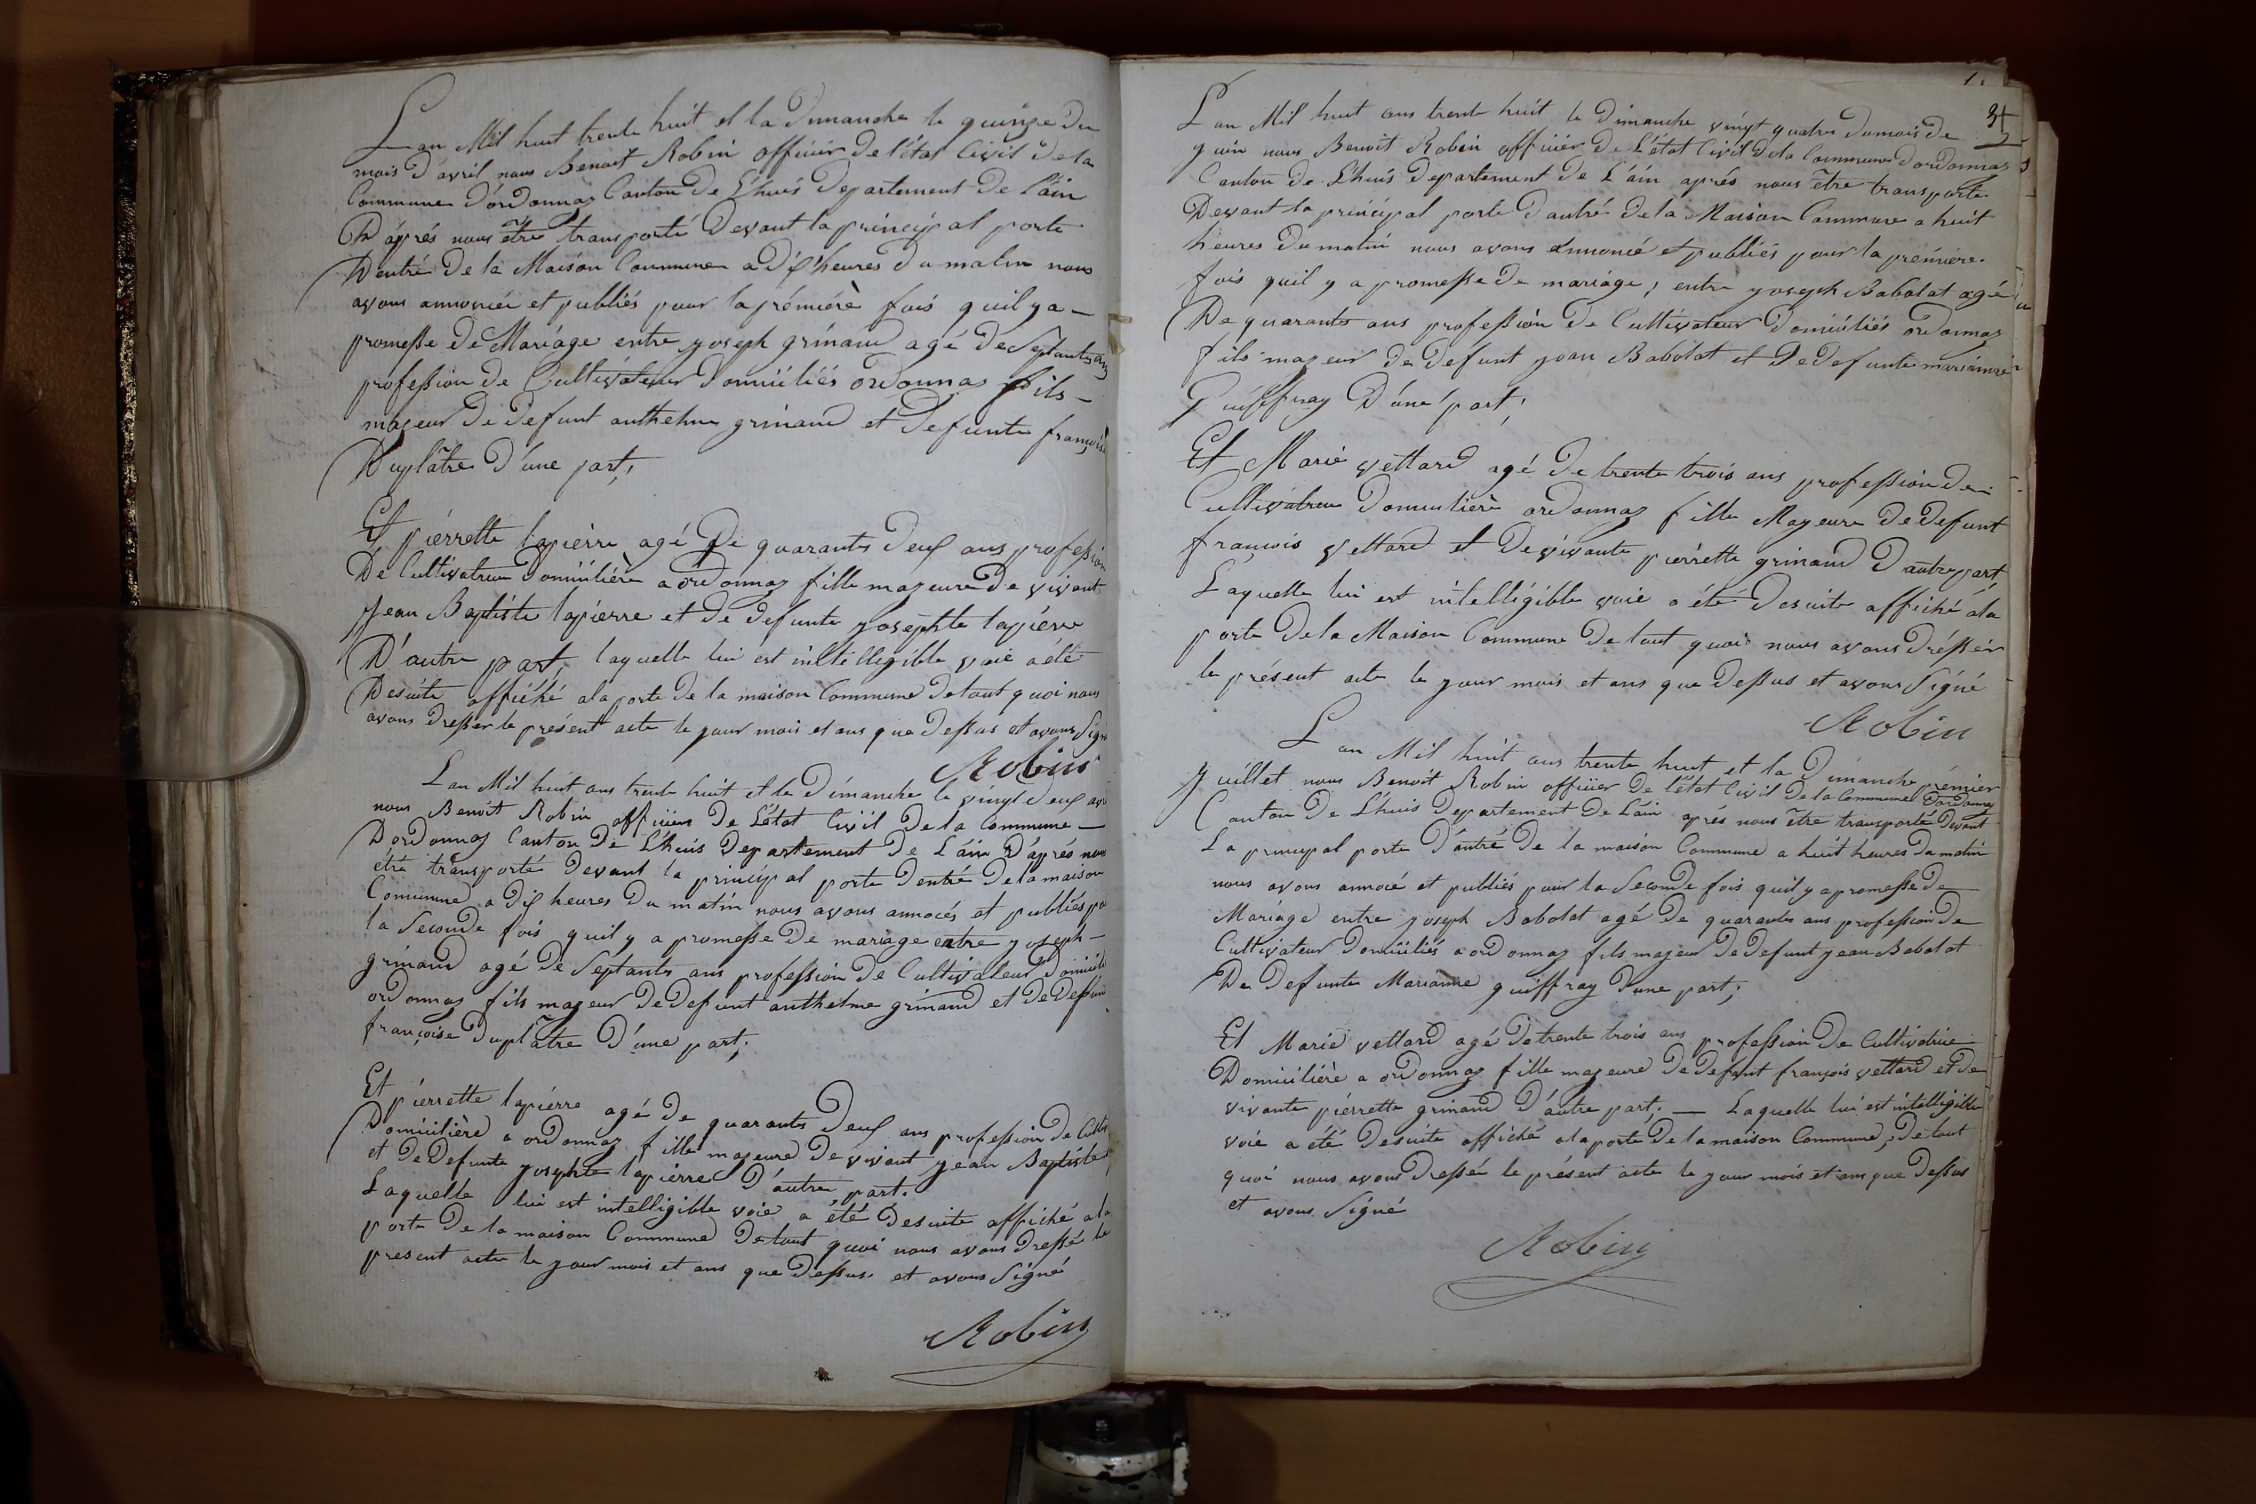 Lan Mil huit trente huit et la Dimanche le quinze du
mois d'avril nous Benoit Robin officier de l'état Civil de la
Commune d'ordonnaz Canton De L'huis departement De L'ain
D'aprés nous être transporté Devant la principal porte
Dentré De la Maison Commune a Dix heures Du matin nous
avons annoncée et publiés pour la prémiére fois quil ya
promesse De Mariage entre yoseph grinand agé De Septante ans
profession de Cultivateur Domiciliés ordonnaz fils
majeur De Defunt anthelme grinand et Defunte françoise
Duplâtre D'une part;
Et pierrette lapierre agé De quarante Deux ans profession
De Cultivatrice Domicilière a ordonnaz fille majeure De vivant
Jean Baptiste lapierre et de defunte yosephte lapierre
D'autre part, laquelle lui est intélligible voie a été
Desuite affiché ala porte de la maison Commune De tout quoi nous
avons dresser le présent acte le jour mois et ans que Dessus et avons Signé
Robin
Lan Mil huit ans trente huit et le Dimanche le vingt Deux avril
nous Benoit Robin officier De L'état Civil De la Commune
Dordonnaz Canton De L'huis Departement De L'ain D'aprés nous
étre transporté Devant la principal porte Dentré De la maison
Commune a Dix heures Du matin nous avons annocés et publiés po
la Seconde fois quil y a promesse De mariage entre yoseph
grinand agé De Septante ans profession De Cultivateur Domicilié
ordonnaz fils majeur De Defunt anthelme grinand et De Defunte
françoise Duplâtre D'une part;
Et pierrette lapierre agé De quarante Deux ans profession De Cultiv
Domicilière a ordonnaz fille majeure De vivant jean Baptiste
et De Defunte yosephte lapierre D'autre part.
Laquelle lui est intelligible voie a été Desuite affiché ala
porte De la maison Commune De tout quoi nous avons dressé le
present acte le jour mois et ans que Dessus et avons Signé
Robin
Lan Mil huit ans trente huit le Dimanche vingt quatre Du mois de
juin nous Benoit Robin officier De L'état Civil De la Commune Dordonnaz
Canton De L'huis Departement De L'ain aprés nous être transporte
Devant la principal porte Dantré De la Maison Commune a huit
heures Du matin nous avons annoncé et publiés pour la premiére
fois quil y a promesse De mariage, entre yoseph Babolat agé
De quarante ans profession De Cultivateur Domiciliés ordonnaz
fils majeur De Défunt jean Babolat et De Defunte marianne
Guiffray D'une part;
Et Marie vettard agé De trente trois ans profession De
Cultivatrice Domicilière ordonnaz fille Majeure De Defunt
francois vettard et De vivante pierrette grinand D'autre part,
Laquelle lui est intelligible voie a été Desuite affiché ala
porte De la Maison Commune De tout quoi nous avons dréssér
le présent acte le jour mois et ans que Dessus et avons Signé
Robin
Lan Mil huit ans trente huit et la Dimanche prémier
Juillet nous Benoit Robin officier De L'état Civil De la Commune Dordonnaz
Canton De L'huis Departement De L'ain aprés nous être transporté Devant
La principal porte D'antré De la maison Commune a huit heures Du matin
nous avons annocé et publiés pour la Seconde fois quil y a promesse De
Mariage entre yoseph Babolat agé De quarante ans profession De
Cultivateur Domiciliés a ordonnaz fils majeur De Defunt jean Babolat
De Defunte Marianne guiffray D'une part;
Et Marie vettard agé De trente trois ans profession De Cultivatrice
Domicilière a ordonnaz fille majeure De Defunt françois vettard et De
vivante pierrette grinand D'autre part; — Laquelle lui est intelligible
voie a été Desuite affiché ala porte De la maison Commune, De tout
quoi nous avons Dressée le présent acte le jour mois et ans que Dessus
et avons Signé
Robin